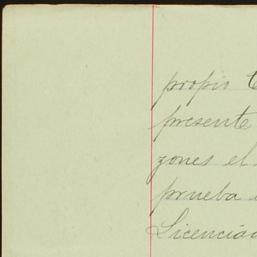 propio
presente
zones el
prueba
Licencia